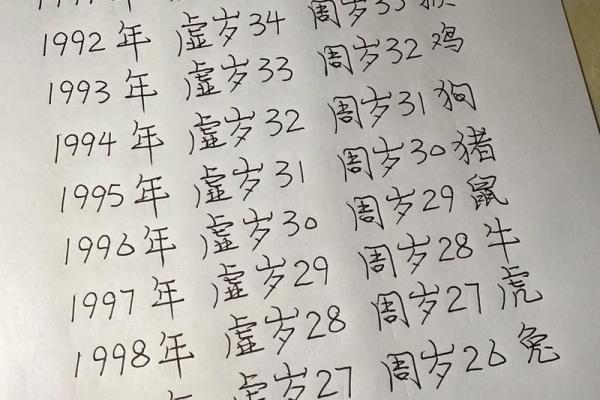 1992年 虚岁34 周岁33 猴
1993年 虚岁33 周岁32 鸡
1994年 虚岁32 周岁31 狗
1995年 虚岁31 周岁30 猪
1996年 虚岁30 周岁29 鼠
1997年 虚岁29 周岁28 牛
1998年 虚岁28 周岁27 虎
虚岁27 周岁26 兔